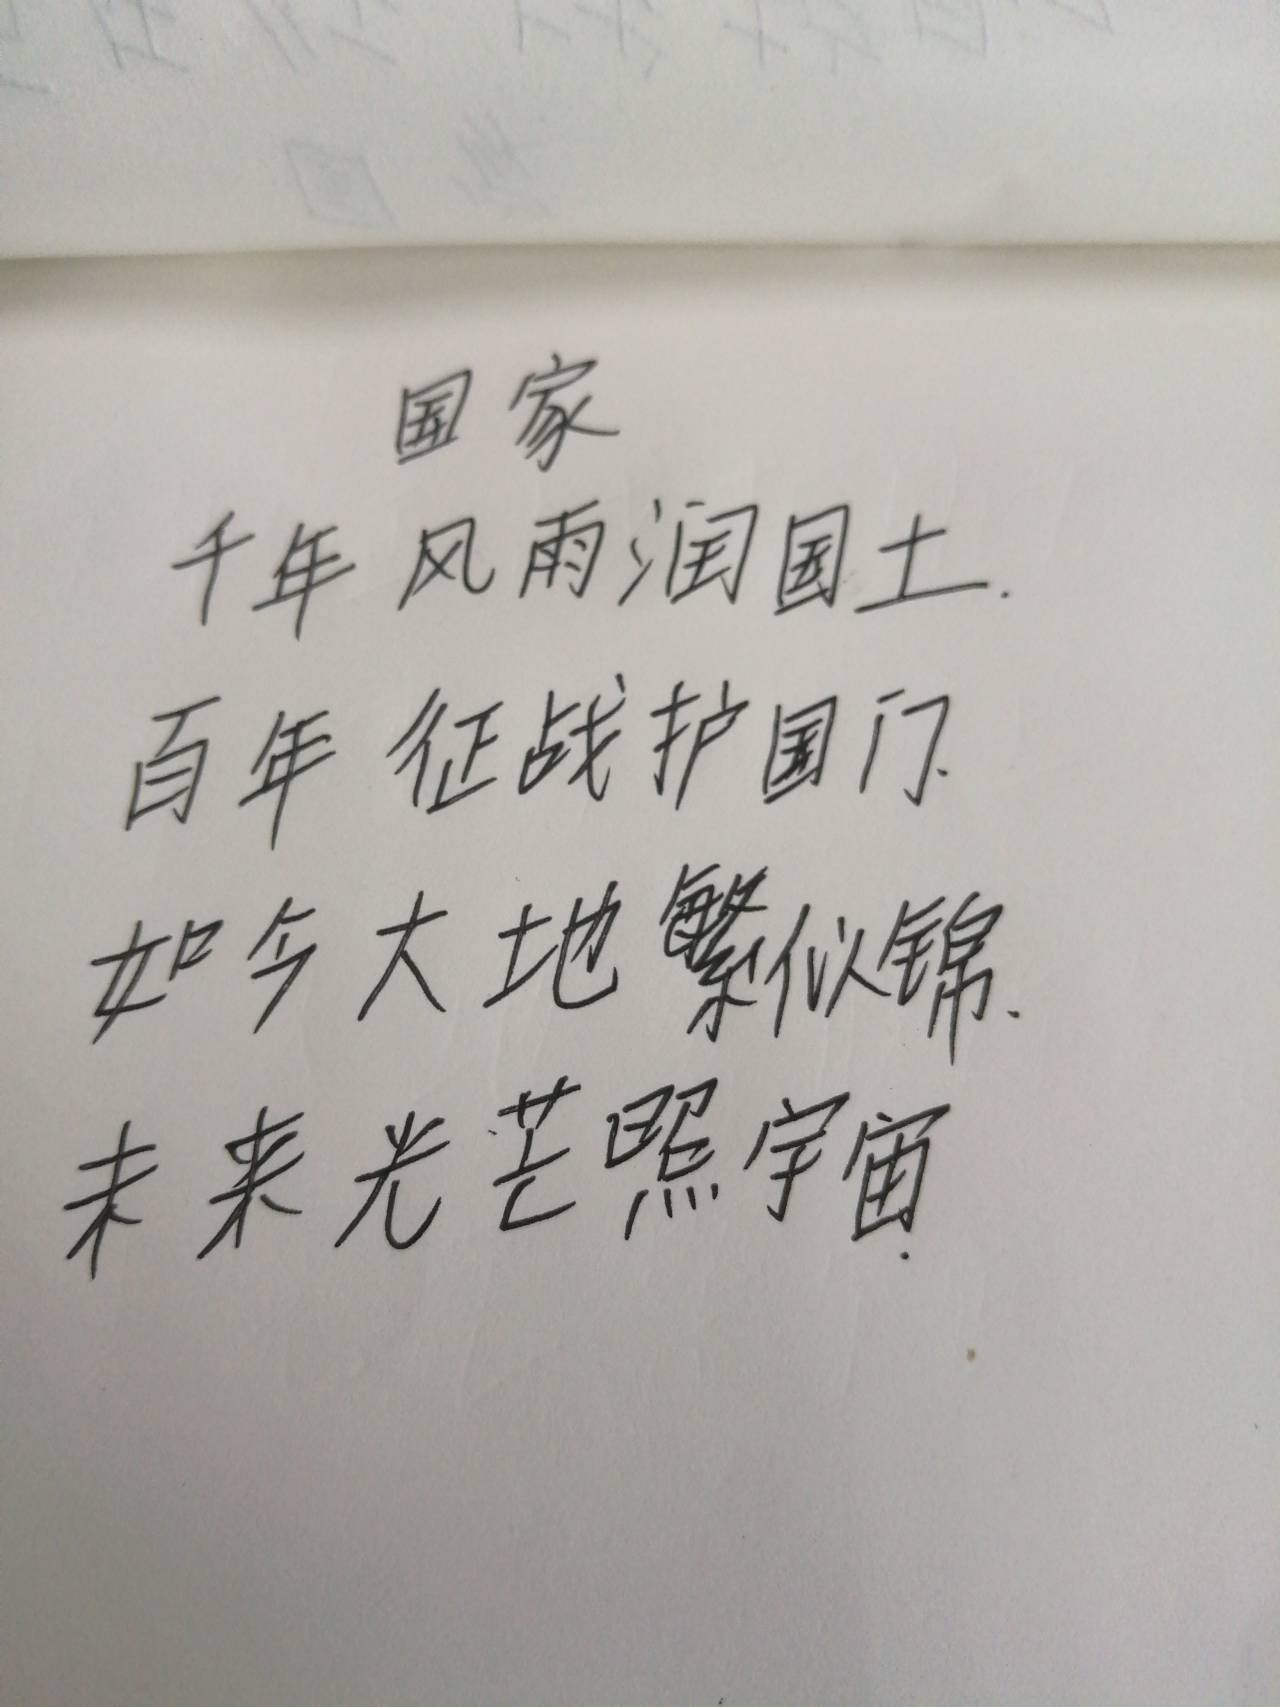 国家
千年风雨润国土.
百年征战护国门.
如今大地繁似锦.
未来光芒照宇宙.